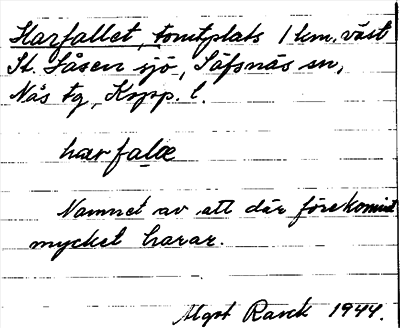 Harfallet, tomtplats 1 km. väst
St. Låsen sjö, Säfsnäs sn,
Nås tg, Kopp. l.
harfalæ
Namnet av att där förekommit
mycket harar.
Mgt Ranck 1944.